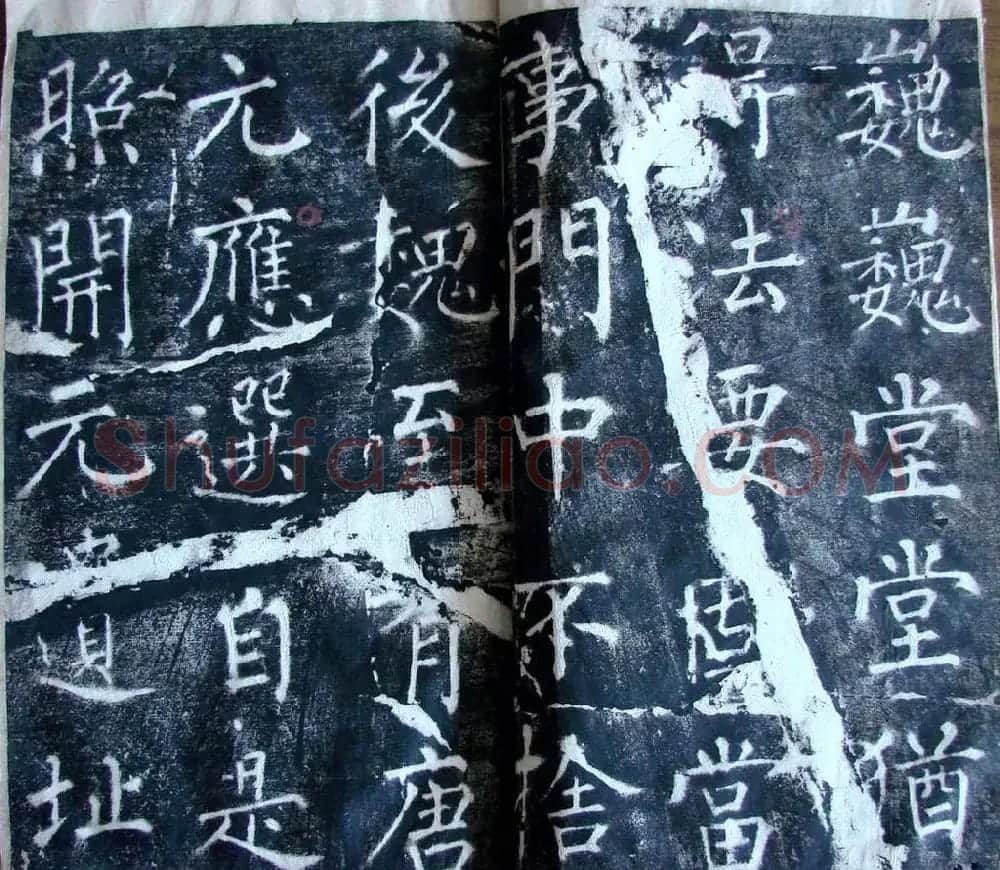 巍巍堂堂猶
得法要當
事門中不捨
後魏至有唐
元應選自是
照開元遺址
Shufaziliao.COM